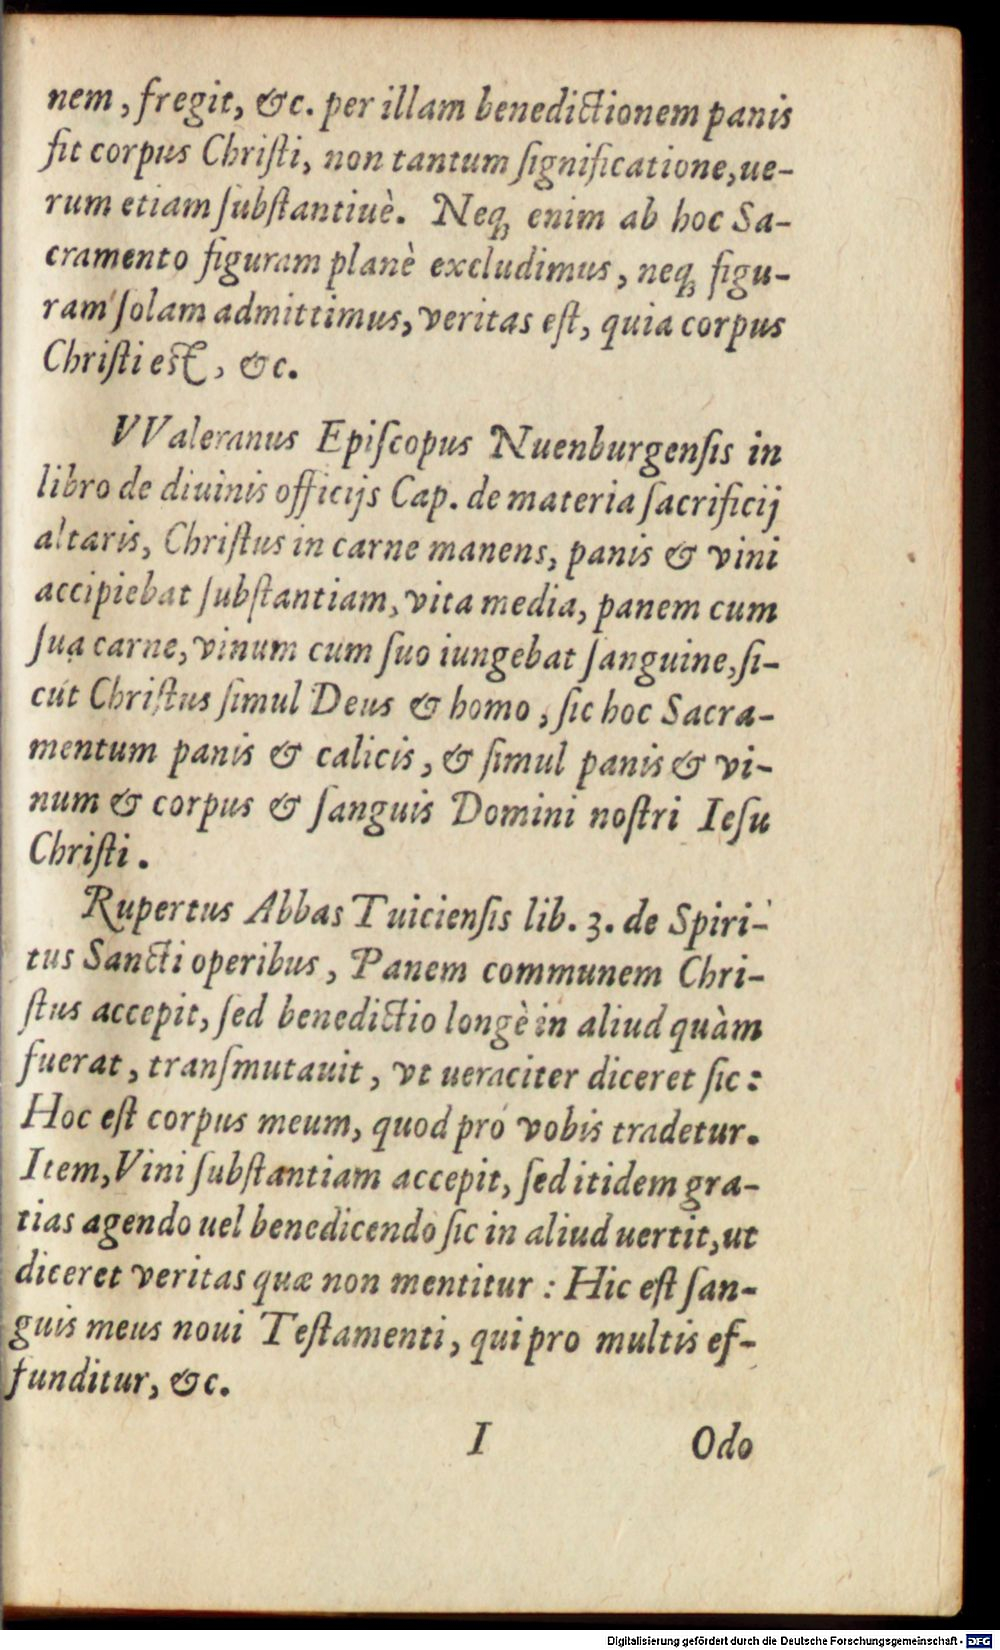 nem, fregit, &c. per illam benedictionem panis
fit corpus Christi, non tantum significatione, ue-
rum etiam substantiuè. Neq; enim ab hoc Sa-
cramento figuram planè excludimus, neq; figu-
ram solam admittimus, veritas est, quia corpus
Christi est, &c.
VValeranus Episcopus Nuenburgensis in
libro de diuinis officijs Cap. de materia sacrificij
altaris, Christus in carne manens, panis & vini
accipiebat substantiam, vita media, panem cum
sua carne, vinum cum suo iungebat sanguine, si-
cut Christus simul Deus & homo, sic hoc Sacra-
mentum panis & calicis, & simul panis & vi-
num & corpus & sanguis Domini nostri Iesu
Christi.
Rupertus Abbas Tuiciensis lib. 3. de Spiri-
tus Sancti operibus, Panem communem Chri-
stus accepit, sed benedictio longè in aliud quàm
fuerat, transmutauit, vt ueraciter diceret sic:
Hoc est corpus meum, quod pro vobis tradetur.
Item, Vini substantiam accepit, sed itidem gra-
tias agendo uel benedicendo sic in aliud uertit, ut
diceret veritas quæ non mentitur: Hic est san-
guis meus noui Testamenti, qui pro multis ef-
funditur, &c.
I Odo
Digitalisierung gefördert durch die Deutsche Forschungsgemeinschaft - DFG